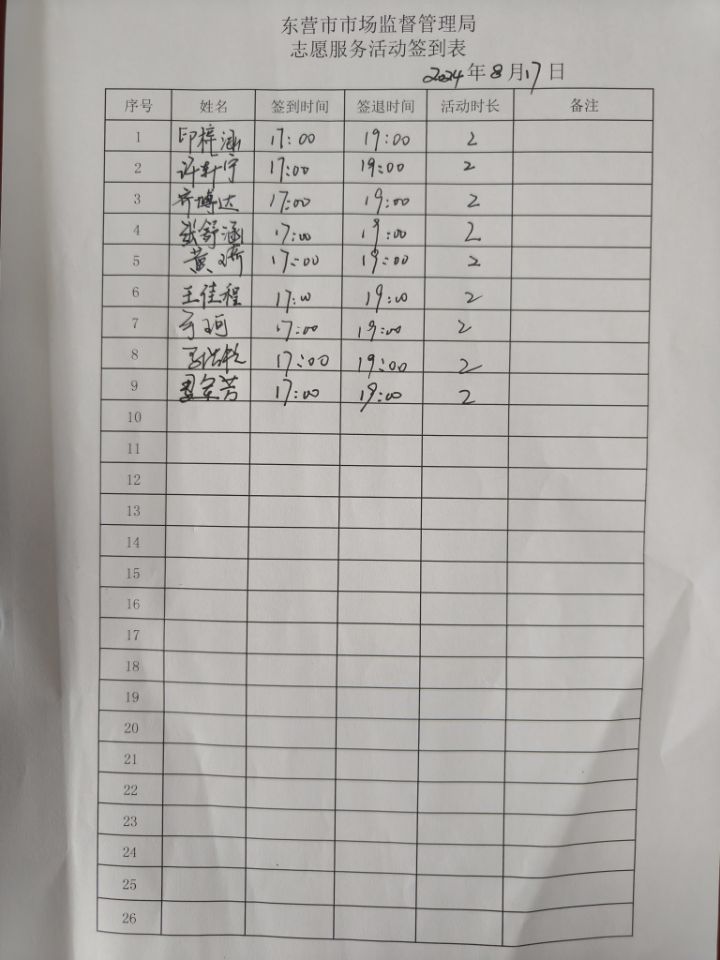 东营市市场监督管理局
志愿服务活动签到表
2024年8月17日
序号 姓名 签到时间 签退时间 活动时长 备注
1 印梓涵 17:00 19:00 2
2 许轩宁 17:00 19:00 2
3 齐博达 17:00 19:00 2
4 张舒涵 17:00 19:00 2
5 黄 17:00 19:00 2
6 王佳程 17:00 19:00 2
7 于珂 17:00 19:00 2
8 17:00 19:00 2
9 17:00 19:00 2
10
11
12
13
14
15
16
17
18
19
20
21
22
23
24
25
26